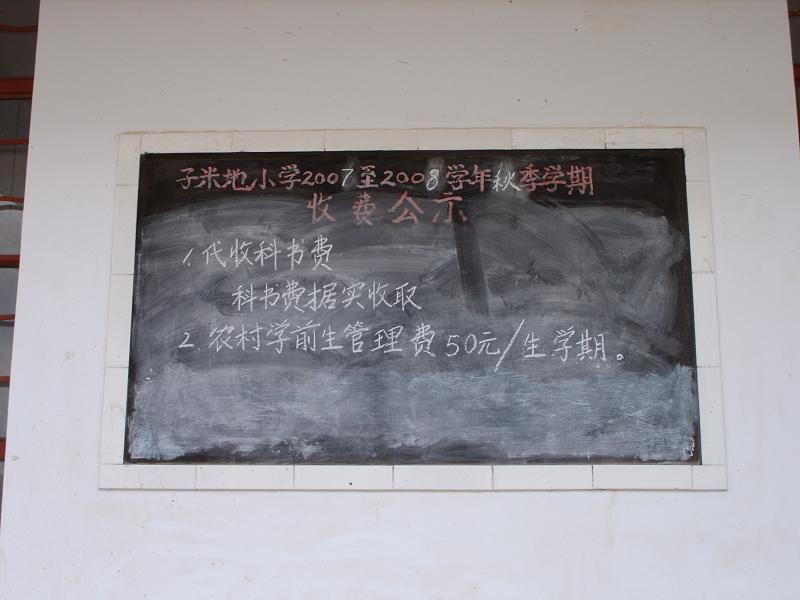 子米地小学2007至2008学年秋季学期
收费公示
1.代收科书费
科书费据实收取
2.农村学前生管理费50元/生学期。